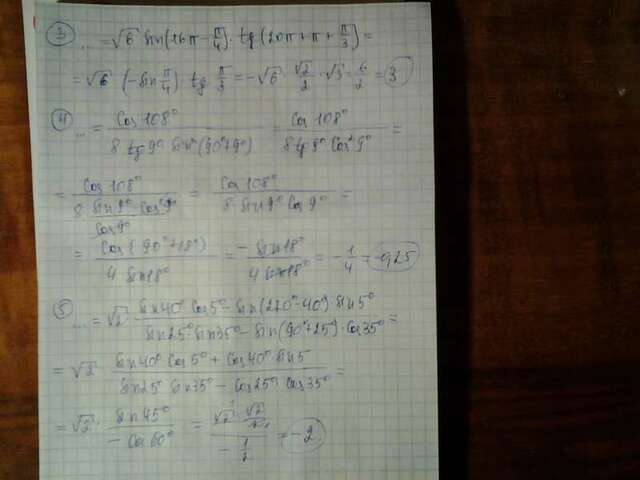 ③ ... = √6 sin(16π - π/4) · tg(20π + π + π/3) =
= √6 (-sin π/4) tg π/3 = -√6 · √2/2 · √3 = 6/2 = 3
④ ... = cos 108° / (8 tg 9° sin²(90°+9°)) = cos 108° / (8 tg 9° cos² 9°) =
= cos 108° / (8 sin 9° · cos² 9° / cos 9°) = cos 108° / (8 sin 9° cos 9°) =
= cos(90°+18°) / (4 sin 18°) = - sin 18° / (4 sin 18°) = - 1/4 = -0,25
⑤ ... = √2 · (sin 40° cos 5° - sin(270°-40°) · sin 5°) / (sin 25° · sin 35° - sin(90°+25°) · cos 35°) =
= √2 · (sin 40° cos 5° + cos 40° sin 5) / (sin 25° sin 35° - cos 25° cos 35°) =
= √2 · sin 45° / (- cos 60°) = (√2 · √2/2) / (- 1/2) = -2